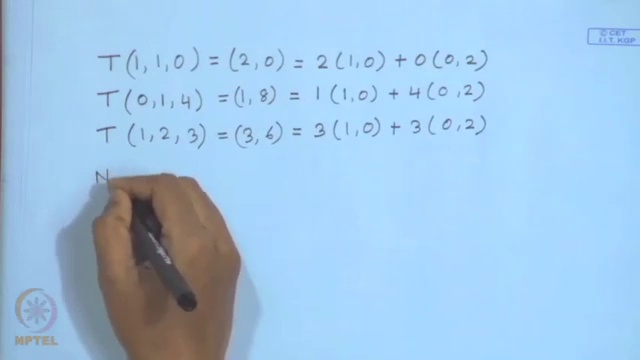 © CET
I.I.T. KGP
T(1,1,0) = (2,0) = 2(1,0) + 0(0,2)
T(0,1,4) = (1,8) = 1(1,0) + 4(0,2)
T(1,2,3) = (3,6) = 3(1,0) + 3(0,2)
N
NPTEL